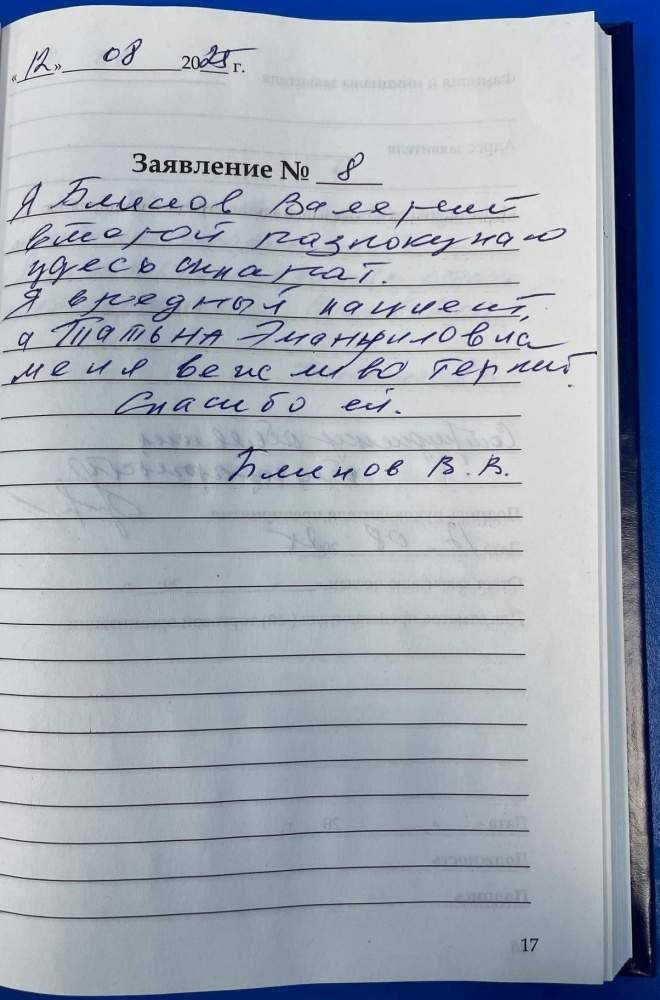 «12» 08 2025 г.
Заявление № 8
Я Блинов Валерий
второй раз покупаю
здесь аппарат.
Я вредный пациент,
а Татьяна Эмануиловна
меня вежливо терпит.
Спасибо ей.
Блинов В.В.
17